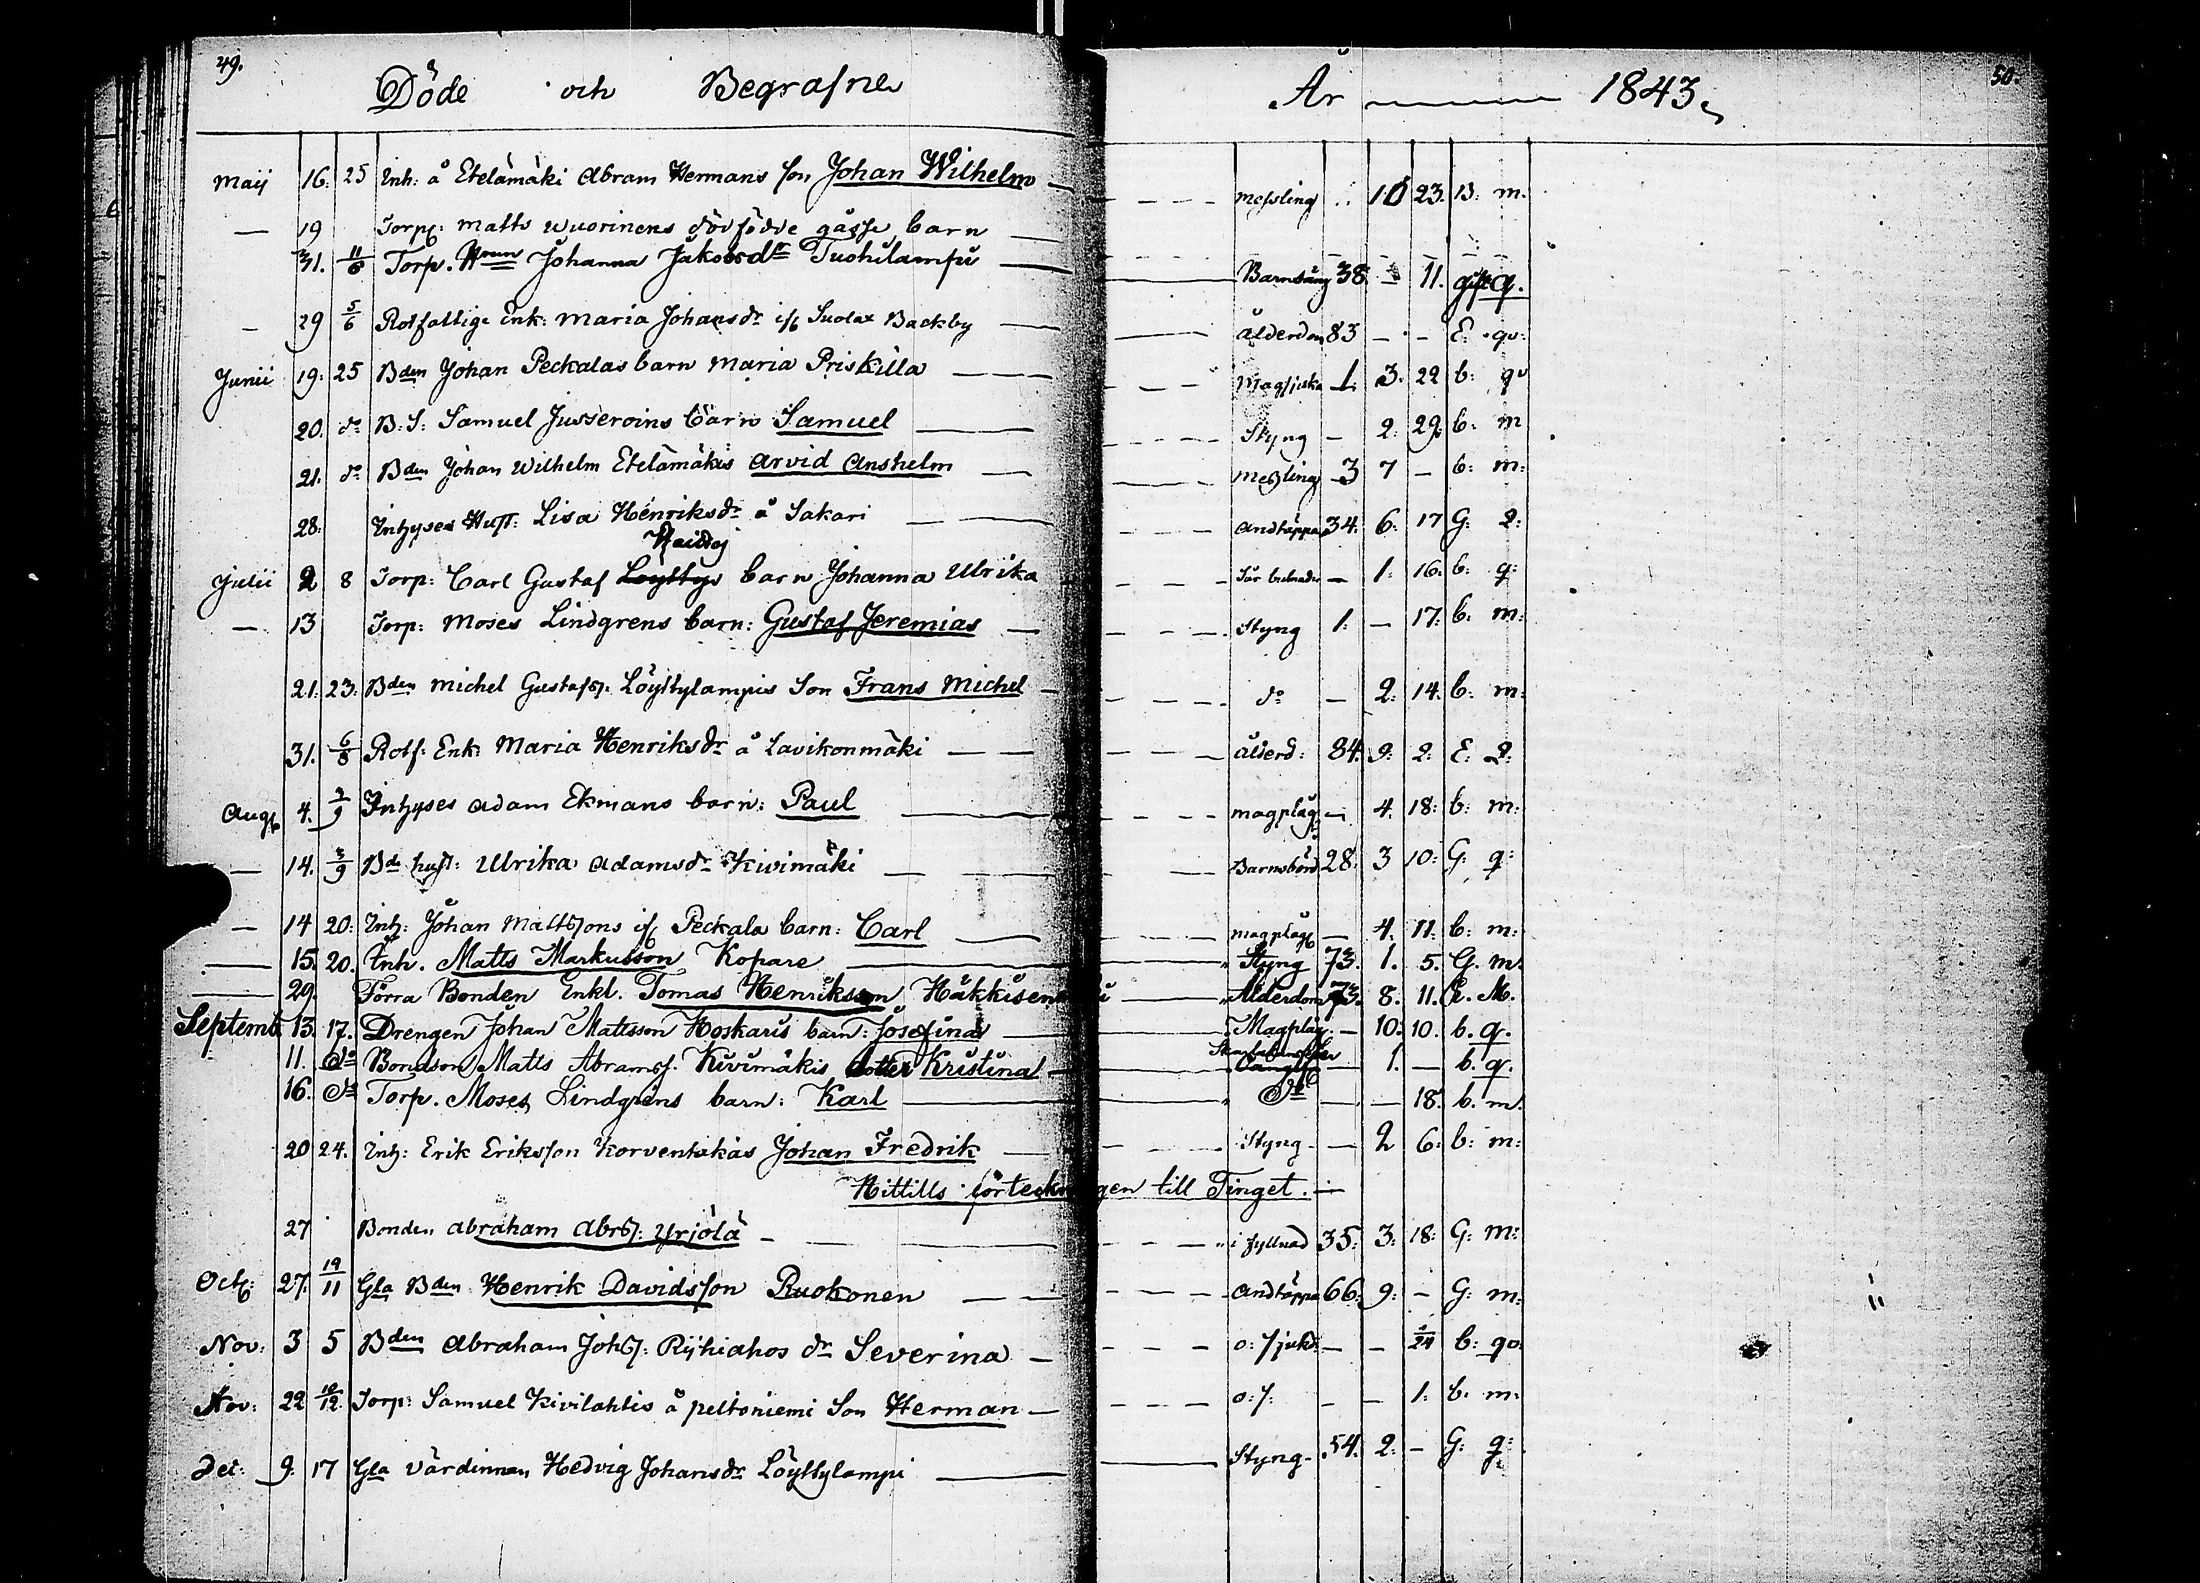 49. Döde och Begrafne År 1843. 50.
Maij 16. 25 Inh: å Etelämäki Abram Hermans son Johan Wilhelm messling 10 23. B: m.
— 19 Torp: Matts Wuorinens dödfödde gåsse barn
31. 11/6 Torp. Johanna Jakobsdr Tuohilampi Barnsäng 38. — 11. gift q.
— 29 5/6 Rotfattige Enk: Maria Johansdr if Suolax Backby ålderdom 83 — - E. qv:
Junii 19: 25 Bden Johan Peckalas barn Maria Priskilla Magsjuka 1. 3. 22 b: qv
20. do B. S: Samuel barn Samuel Styng — 2: 29. b: m
21: do Bden Johan Wilhelm Etelämäkis Arvid Anshelm Messling 3 7 — b: m:
28: Inhyses Hust: Lisa Henriksdr å Sakari Andtäppa 34: 6: 17 G: Q:
Julii 2 8 Torp: Carl Gustaf Löyttys barn Johanna Ulrika — 1: 16: b: q:
— 13 Torp: Moses Lindgrens barn: Gustaf Jeremias Styng 1: — 17: b: m:
21: 23: Bden Michel Gustafs. Löyttylampis Son Frans Michel do — 2: 14: b: m:
31. 6/8 Rotf: Enk: Maria Henriksdr å Lavikonmäki ålderd: 84. 9: 2: E: Q:
Aug 4. 3/9 Inhyses Adam Ekmans barn: Paul magplåg — 4. 18: b: m:
— 14. 3/9 Bd hust: Ulrika Adamsdr Kivimäki Barnsbörd 28: 3 10: G: q:
— 14 20: Inh: Johan Mattssons if Peckala barn: Carl magplåg — 4. 11: b: m:
— 15. 20. Inh. Matts Markusson Kopare Styng 73. 1. 5. G. m.
— 29. Förra Bonden Enkl. Tomas Henriksson Ålderdom 73. 8. 11. E. M.
Septemb. 13. 17. Drengen Johan Matsson Hoskaris barn: Josefina Magplåg. — 10: 10. b. q.
11. do Bondson Matts Abrams. Kivimäkis dotter Kristina — 1. — b. q.
16. do Torp. Moses Lindgrens barn: Karl do — — 18. b. m.
20 24. Inh: Erik Eriksson Korventakas Johan Fredrik Styng — 2 6: b: m:
Hittills förteckningen till Tinget. —
27 Bonden Abraham Abrs: Yrjölä i fyllnad 35: 3: 18: G: m:
Oct: 27. 19/11 Gla Bden Henrik Davidsson Ruokonen Andtäppa 66: 9: — G: m:
Nov: 3 5 Bden Abraham Johs: Ryhiahos dr Severina o: sjukd: — — /24 b: qv
Nov: 22 10/12. Torp: Samuel Kivilahtis å peltoniemi Son Herman o: s: — — 1: b. m:
Dec: 9: 17 Gla värdinnan Hedvig Johansdr Löyttylampi Styng 54. 2: — G: q: